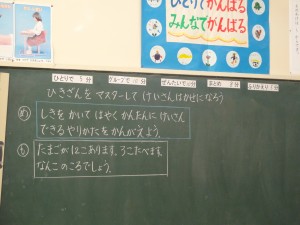 ひとりでがんばる
みんなでがんばる
ひとりで 5 分
グループで 分
ぜんたいで 分
まとめ 分
ふりかえり 分
ひきざんを マスターして けいさんはかせになろう
め
しきを かいて はやく かんたんに けいさん
できる やりかたを かんがえよう。
も
たまごが 12こ あります。3こ たべます。
なんこ のこるでしょう。